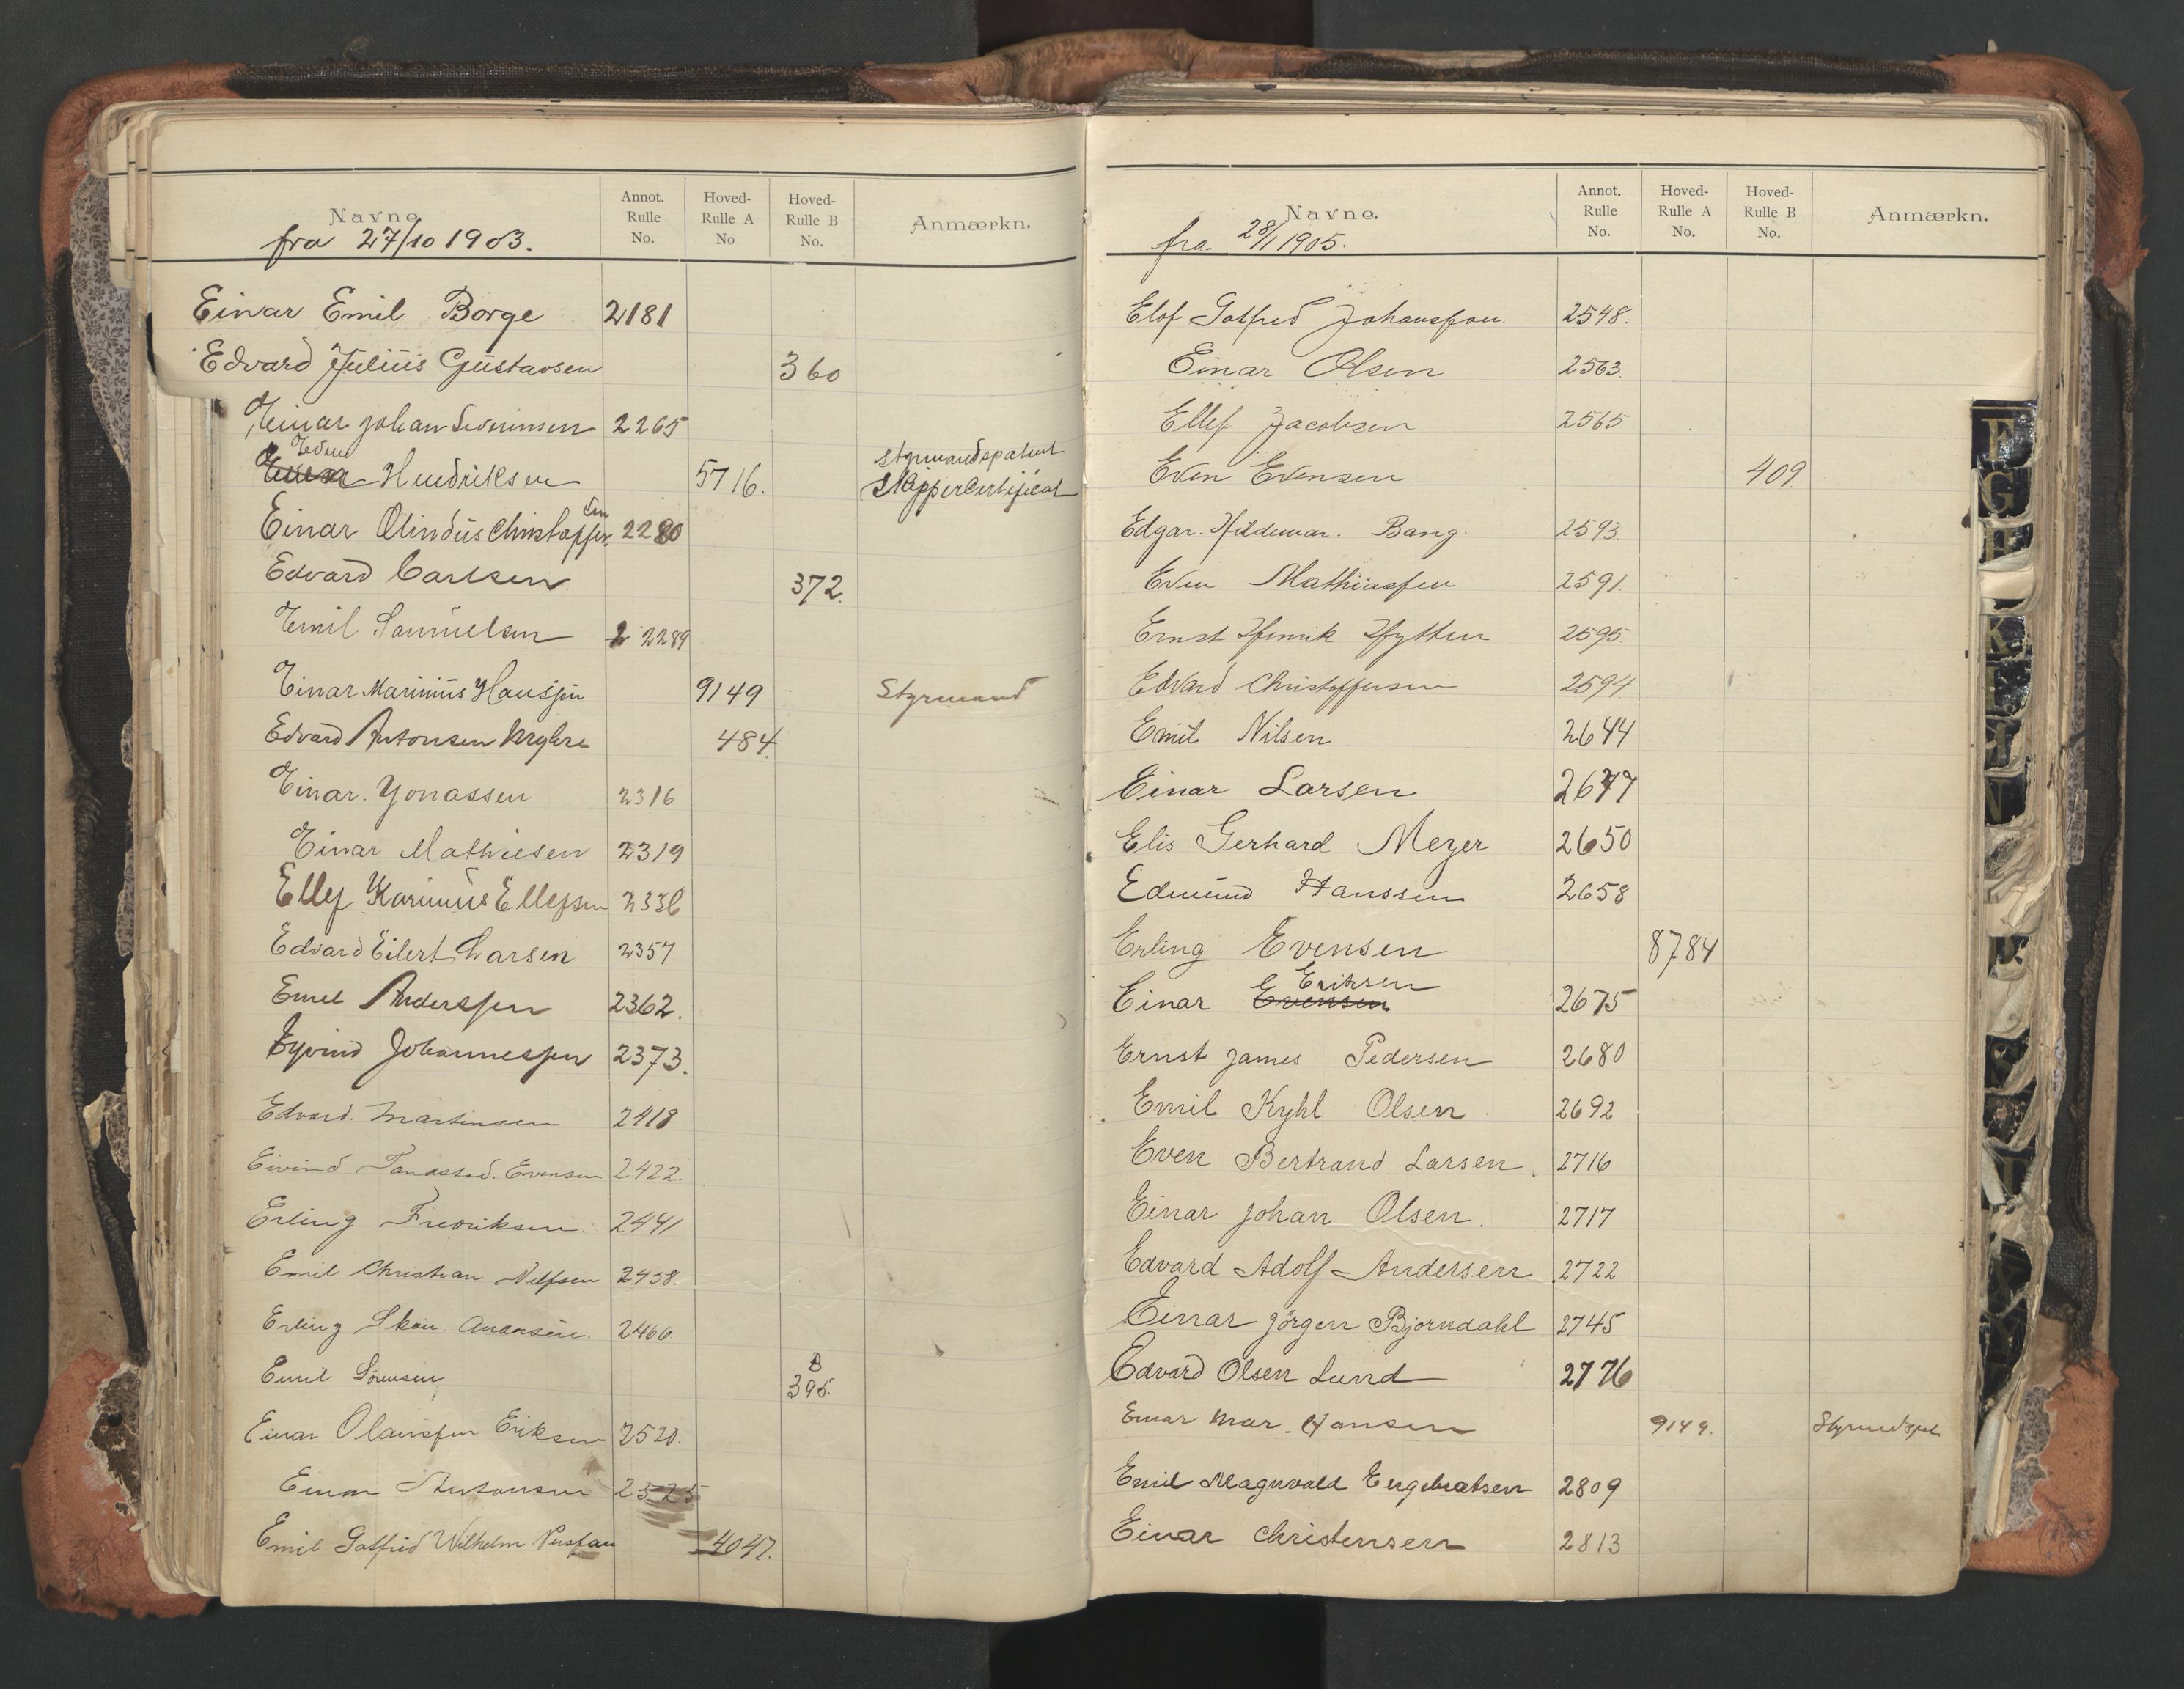 Navne
fra 27/10 1903.
Annot. Rulle No.
Hoved-Rulle A No
Hoved-Rulle B No.
Anmærkn.
Einar Emil Borge 2181
Edvard Julius Gustavsen 360
Einar Johan Severinsen 2265
Edvin Hendriksen 5716. Styrmandspatent Skippercertificat
Einar Olindus Christoffersen 2280
Edvard Carlsen 372.
Emil Samuelsen 2289
Einar Marinius Hansen 9149 Styrmand
Edvard Antonsen Myhre 484.
Einar Jonassen 2316
Einar Mathiesen 2319
Ellef Karinius Ellefsen 2336
Edvard Eilert Larsen 2357
Emil Anderssen 2362.
Eyvind Johannessen 2373.
Edvard Martinsen 2418
Eivind Tandstad. Evensen 2422.
Erling Fredriksen 2441
Emil Christian Nilssen 2458.
Erling Skau 2466
Emil Sörensen B 395.
Einar Olaussen Eriksen 2520.
Einar Antonsen 2525
Emil Gotfrid Wilhelm 4047.
Navne.
fra 28/1 1905.
Annot. Rulle No.
Hoved-Rulle A No.
Hoved-Rulle B No.
Anmærkn.
Elof Gotfred Johansson 2548.
Einar Olsen 2563.
Ellef Jacobsen 2565
Even Evensen 409.
Edgar Hildemar. Bang. 2593.
Even Mathiassen 2591.
Ernst Henrik Hytten 2595.
Edvard Christoffersen 2594.
Emil Nilsen 2644
Einar Larsen 2647
Elis Gerhard Meyer 2650
Edmund Hanssen 2658
Erling Evensen 8784
Eriksen
Einar Evensen 2675
Ernst James Pedersen 2680
Emil Kyhl Olsen 2692
Even Bertrand Larsen. 2716
Einar Johan Olsen. 2717
Edvard Adolf Andersen 2722
Einar Jörgen Bjorndahl 2745
Edvard Olsen Lund 2776
Einar Mar. Hansen 9149. Styrmdspat
Emil Magnvald Engebretsen 2809
Einar Christensen 2813
F
G
K
N